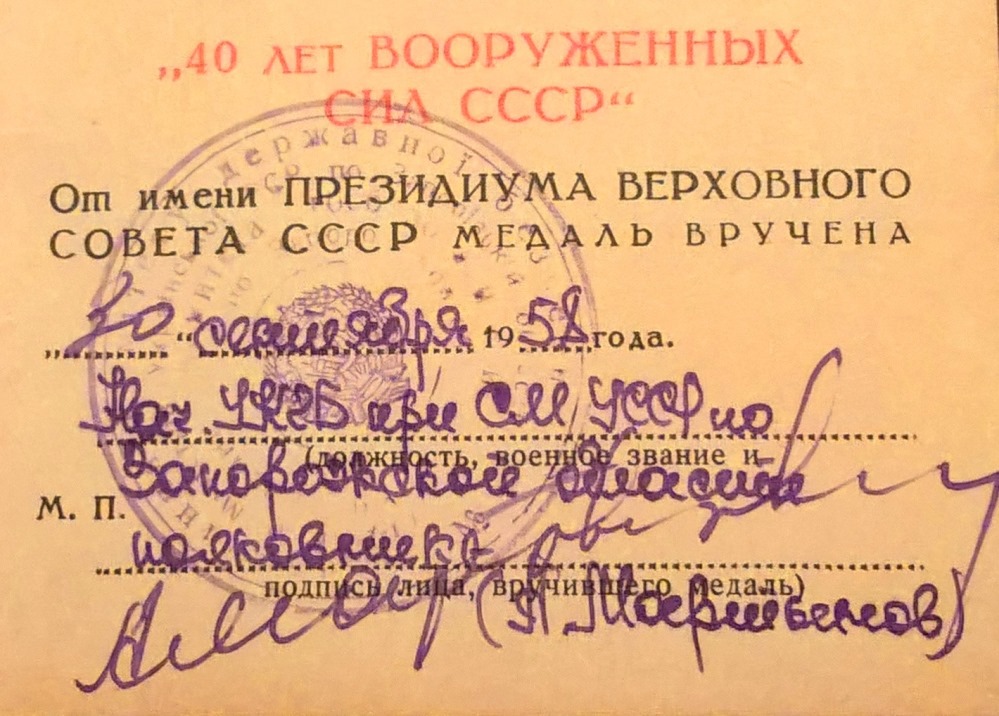 „40 ЛЕТ ВООРУЖЕННЫХ
СИЛ СССР“
От имени ПРЕЗИДИУМА ВЕРХОВНОГО
СОВЕТА СССР МЕДАЛЬ ВРУЧЕНА
„30“ сентября 1958 года.
Нач. УКГБ при СМ УССР по
(должность, военное звание и
Запорожской области
М. П.
полковник
подпись лица, вручившего медаль)
(П. Мартынов)